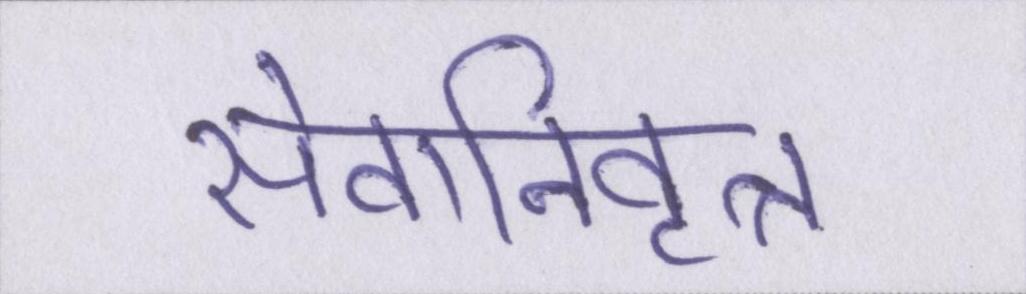 सेवानिवृत्त